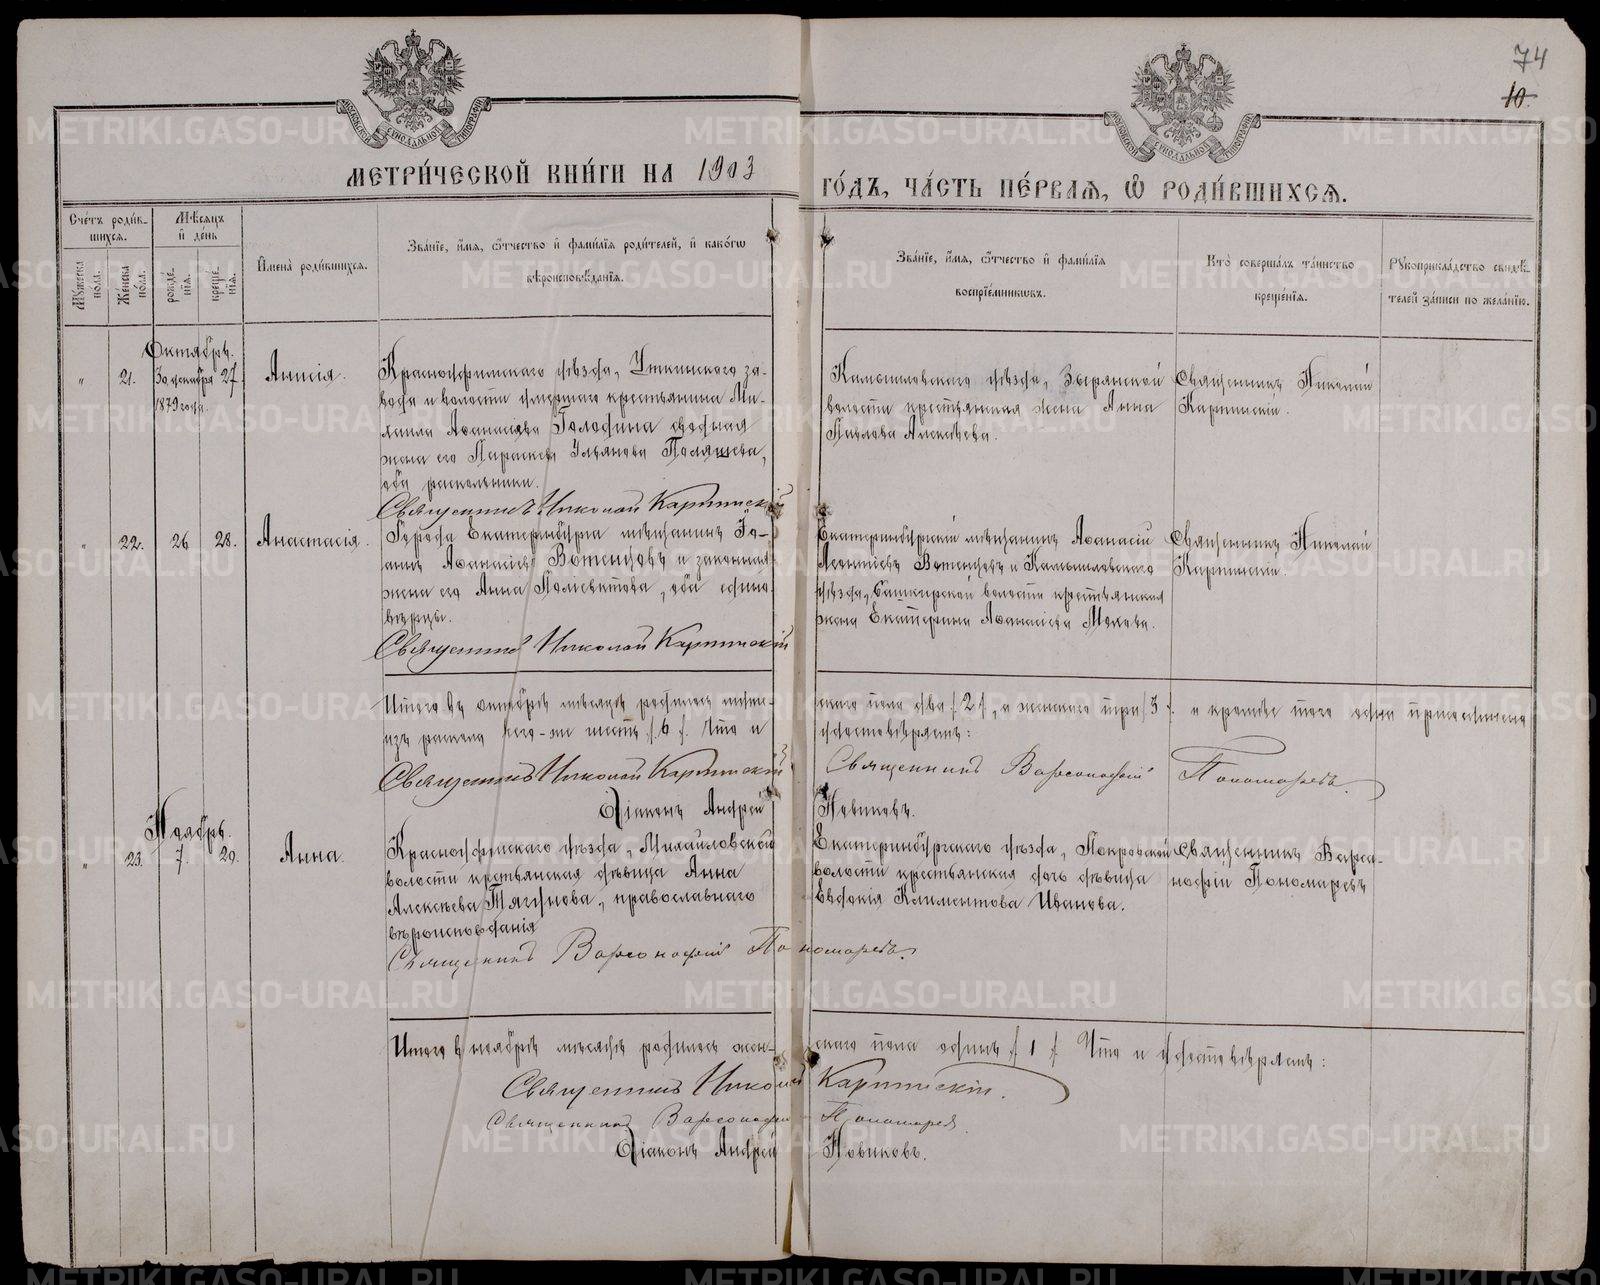 74
10.
МОСКОВСКОЙ СѴНОДАЛЬНОЙ ТИПОГРАФІИ
МОСКОВСКОЙ СѴНОДАЛЬНОЙ ТИПОГРАФІИ
МЕТРИ́ЧЕСКОЙ КНИ́ГИ НА 1903 ГО́ДЪ, ЧА́СТЬ ПЕ́РВАЯ, Ѡ҆ РОДИ́ВШИХСЯ.
Сче́тъ роди́в-
шихся.
Мѣ́сяцъ
и҆ де́нь
Мꙋ́жеска по́ла.
Же́нска по́ла.
рожде́-
нїя.
креще́-
нїя.
И҆мена̀ роди́вшихся.
Зва́нїе, и҆́мя, ѻ҆́тчество и҆ фами́лїя роди́телей, и҆ како́гѡ
вѣроисповѣ́данїя.
Зва́нїе, и҆́мя, ѻ҆́тчество и҆ фами́лїя
воспрїе́мниковъ.
Кто̀ соверша́лъ та́инство
креще́нїя.
Рꙋкоприкла́дство свидѣ́-
телей за́писи по жела́нїю.
Октябрь.
" 21. 30 декабря 27. Анисія.
1879 года.
Красноуфимскаго уѣзда, Уткинскаго за-
вода и волости умершаго крестьянина Ми-
хаила Аѳанасіева Голодина сводная
жена его Параскева Ульянова Поляшева,
оба раскольники.
Священникъ Николай Карпинскій
Камышловскаго уѣзда, Зырянской
волости крестьянская жена Анна
Павлова Алексѣева.
Священникъ Николай
Карпинскій.
" 22. 26 28. Анастасія.
Города Екатеринбурга мѣщанинъ Іо-
аннъ Аѳанасіевъ Вотенцовъ и законная
жена его Анна Полиевктова, оба едино-
вѣрцы.
Священникъ Николай Карпинскій
Екатеринбургскій мѣщанинъ Аѳанасій
Леонтіевъ Вотенцовъ и Камышловскаго
уѣзда, Башкирской волости крестьянская
жена Екатерина Аѳанасіева
Священникъ Николай
Карпинскій.
Итого въ октябрѣ мѣсяцѣ родилось муже-
скаго пола два /2/, а женскаго три /3/. и кромѣ того одна присоединена
изъ раскола, всего-же шесть /6/. Что и
удостовѣряемъ:
Священникъ Николай Карпинскій
Священникъ Варсонофій Пономаревъ.
Діаконъ Андрей Новиковъ.
Ноябрь.
" 23. 7. 29. Анна.
Красноуфимскаго уѣзда, Михайловской
волости крестьянская дѣвица Анна
Алексѣева Тягунова, православнаго
вѣроисповѣданія
Священникъ Варсонофій Пономаревъ.
Екатеринбургскаго уѣзда, Покровской
волости крестьянская дочь дѣвица
Евдокія Климентова Иванова.
Священникъ Варсо-
нофій Пономаревъ
Итого въ ноябрѣ мѣсяцѣ родилось жен-
скаго пола одинъ /1/ Что и удостовѣряемъ:
Священникъ Николай Карпинскій.
Священникъ Варсонофій Пономаревъ
Діаконъ Андрей Новиковъ.
METRIKI.GASO-URAL.RU